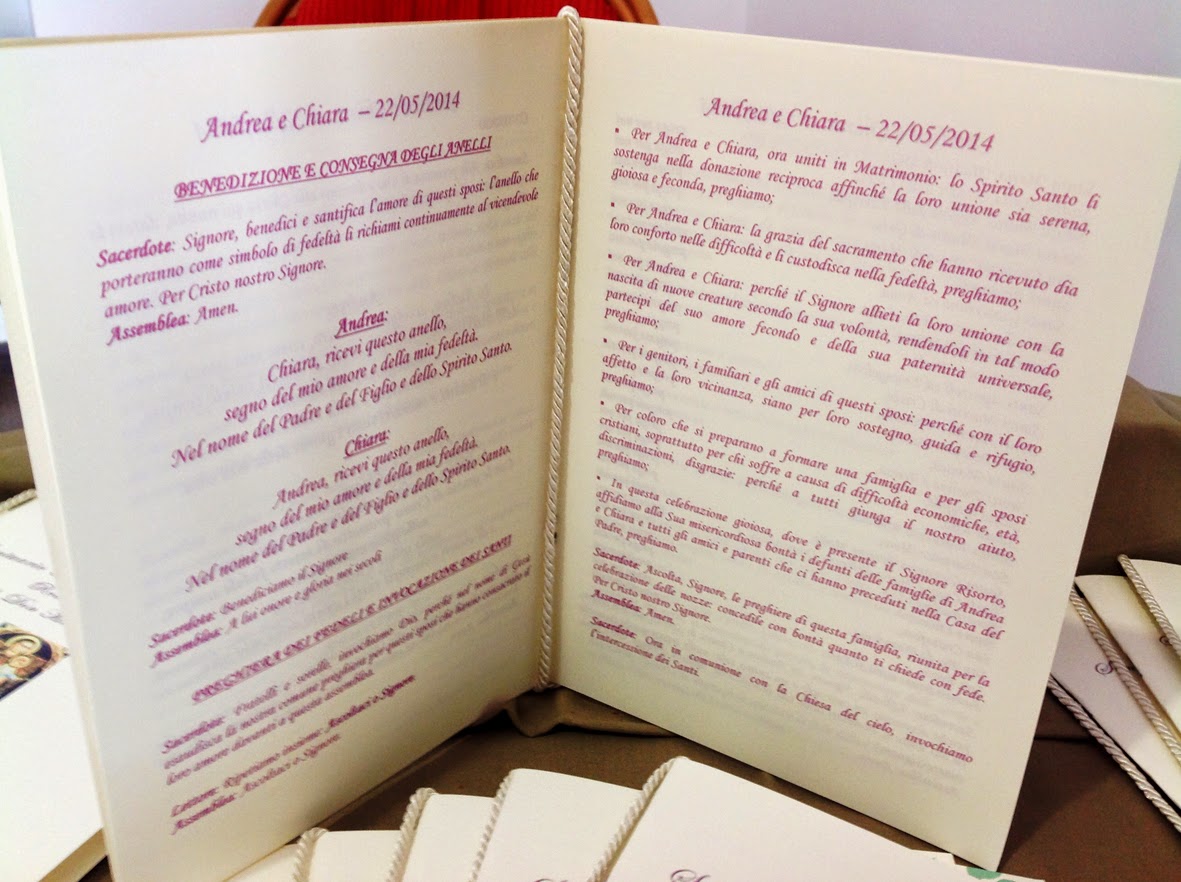 Andrea e Chiara – 22/05/2014
BENEDIZIONE E CONSEGNA DEGLI ANELLI
Sacerdote: Signore, benedici e santifica l'amore di questi sposi: l'anello che
porteranno come simbolo di fedeltà li richiami continuamente al vicendevole
amore. Per Cristo nostro Signore.
Assemblea: Amen.
Andrea:
Chiara, ricevi questo anello,
segno del mio amore e della mia fedeltà.
Nel nome del Padre e del Figlio e dello Spirito Santo.
Chiara:
Andrea, ricevi questo anello,
segno del mio amore e della mia fedeltà.
Nel nome del Padre e del Figlio e dello Spirito Santo.
Sacerdote: Benediciamo il Signore
Assemblea: A lui onore e gloria nei secoli
PREGHIERA DEI FEDELI E INVOCAZIONE DEI SANTI
Sacerdote: Fratelli e sorelle, invochiamo Dio, perché nel nome di Gesù
esaudisca la nostra comune preghiera per questi sposi che hanno consacrato il
loro amore davanti a questa assemblea.
Lettore: Ripetiamo insieme: Ascoltaci o Signore.
Assemblea: Ascoltaci o Signore.
Andrea e Chiara – 22/05/2014
• Per Andrea e Chiara, ora uniti in Matrimonio: lo Spirito Santo li
sostenga nella donazione reciproca affinché la loro unione sia serena,
gioiosa e feconda, preghiamo;
• Per Andrea e Chiara: la grazia del sacramento che hanno ricevuto dia
loro conforto nelle difficoltà e li custodisca nella fedeltà, preghiamo;
• Per Andrea e Chiara: perché il Signore allieti la loro unione con la
nascita di nuove creature secondo la sua volontà, rendendoli in tal modo
partecipi del suo amore fecondo e della sua paternità universale,
preghiamo;
• Per i genitori, i familiari e gli amici di questi sposi: perché con il loro
affetto e la loro vicinanza, siano per loro sostegno, guida e rifugio,
preghiamo;
• Per coloro che si preparano a formare una famiglia e per gli sposi
cristiani, soprattutto per chi soffre a causa di difficoltà economiche, età,
discriminazioni, disgrazie: perché a tutti giunga il nostro aiuto,
preghiamo;
• In questa celebrazione gioiosa, dove è presente il Signore Risorto,
affidiamo alla Sua misericordiosa bontà i defunti delle famiglie di Andrea
e Chiara e tutti gli amici e parenti che ci hanno preceduti nella Casa del
Padre, preghiamo.
Sacerdote: Ascolta, Signore, le preghiere di questa famiglia, riunita per la
celebrazione delle nozze: concedile con bontà quanto ti chiede con fede.
Per Cristo nostro Signore.
Assemblea: Amen.
Sacerdote: Ora in comunione con la Chiesa del cielo, invochiamo
l'intercessione dei Santi.